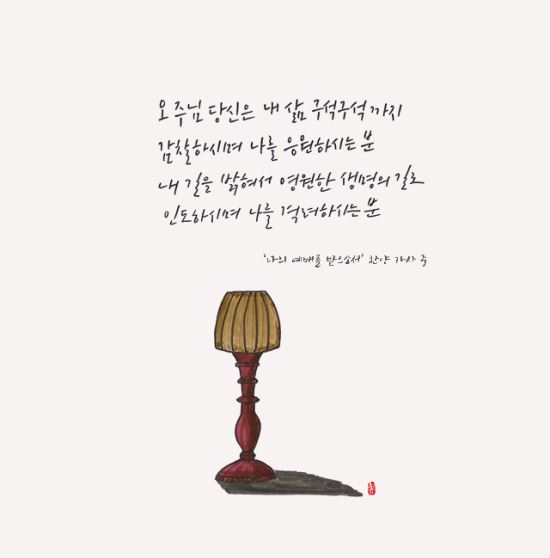 오 주님 당신은 내 삶 구석구석까지
감찰하시며 나를 응원하시는 분
내 길을 밝혀서 영원한 생명의 길로
인도하시며 나를 격려하시는 분
'나의 예배를 받으소서' 찬양 가사 중